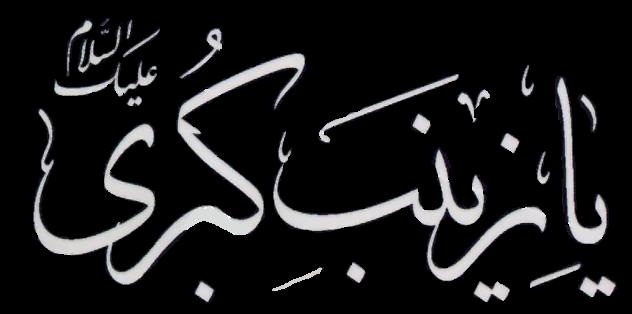 یا زِینَبِ کُبری
علیک السَّلام